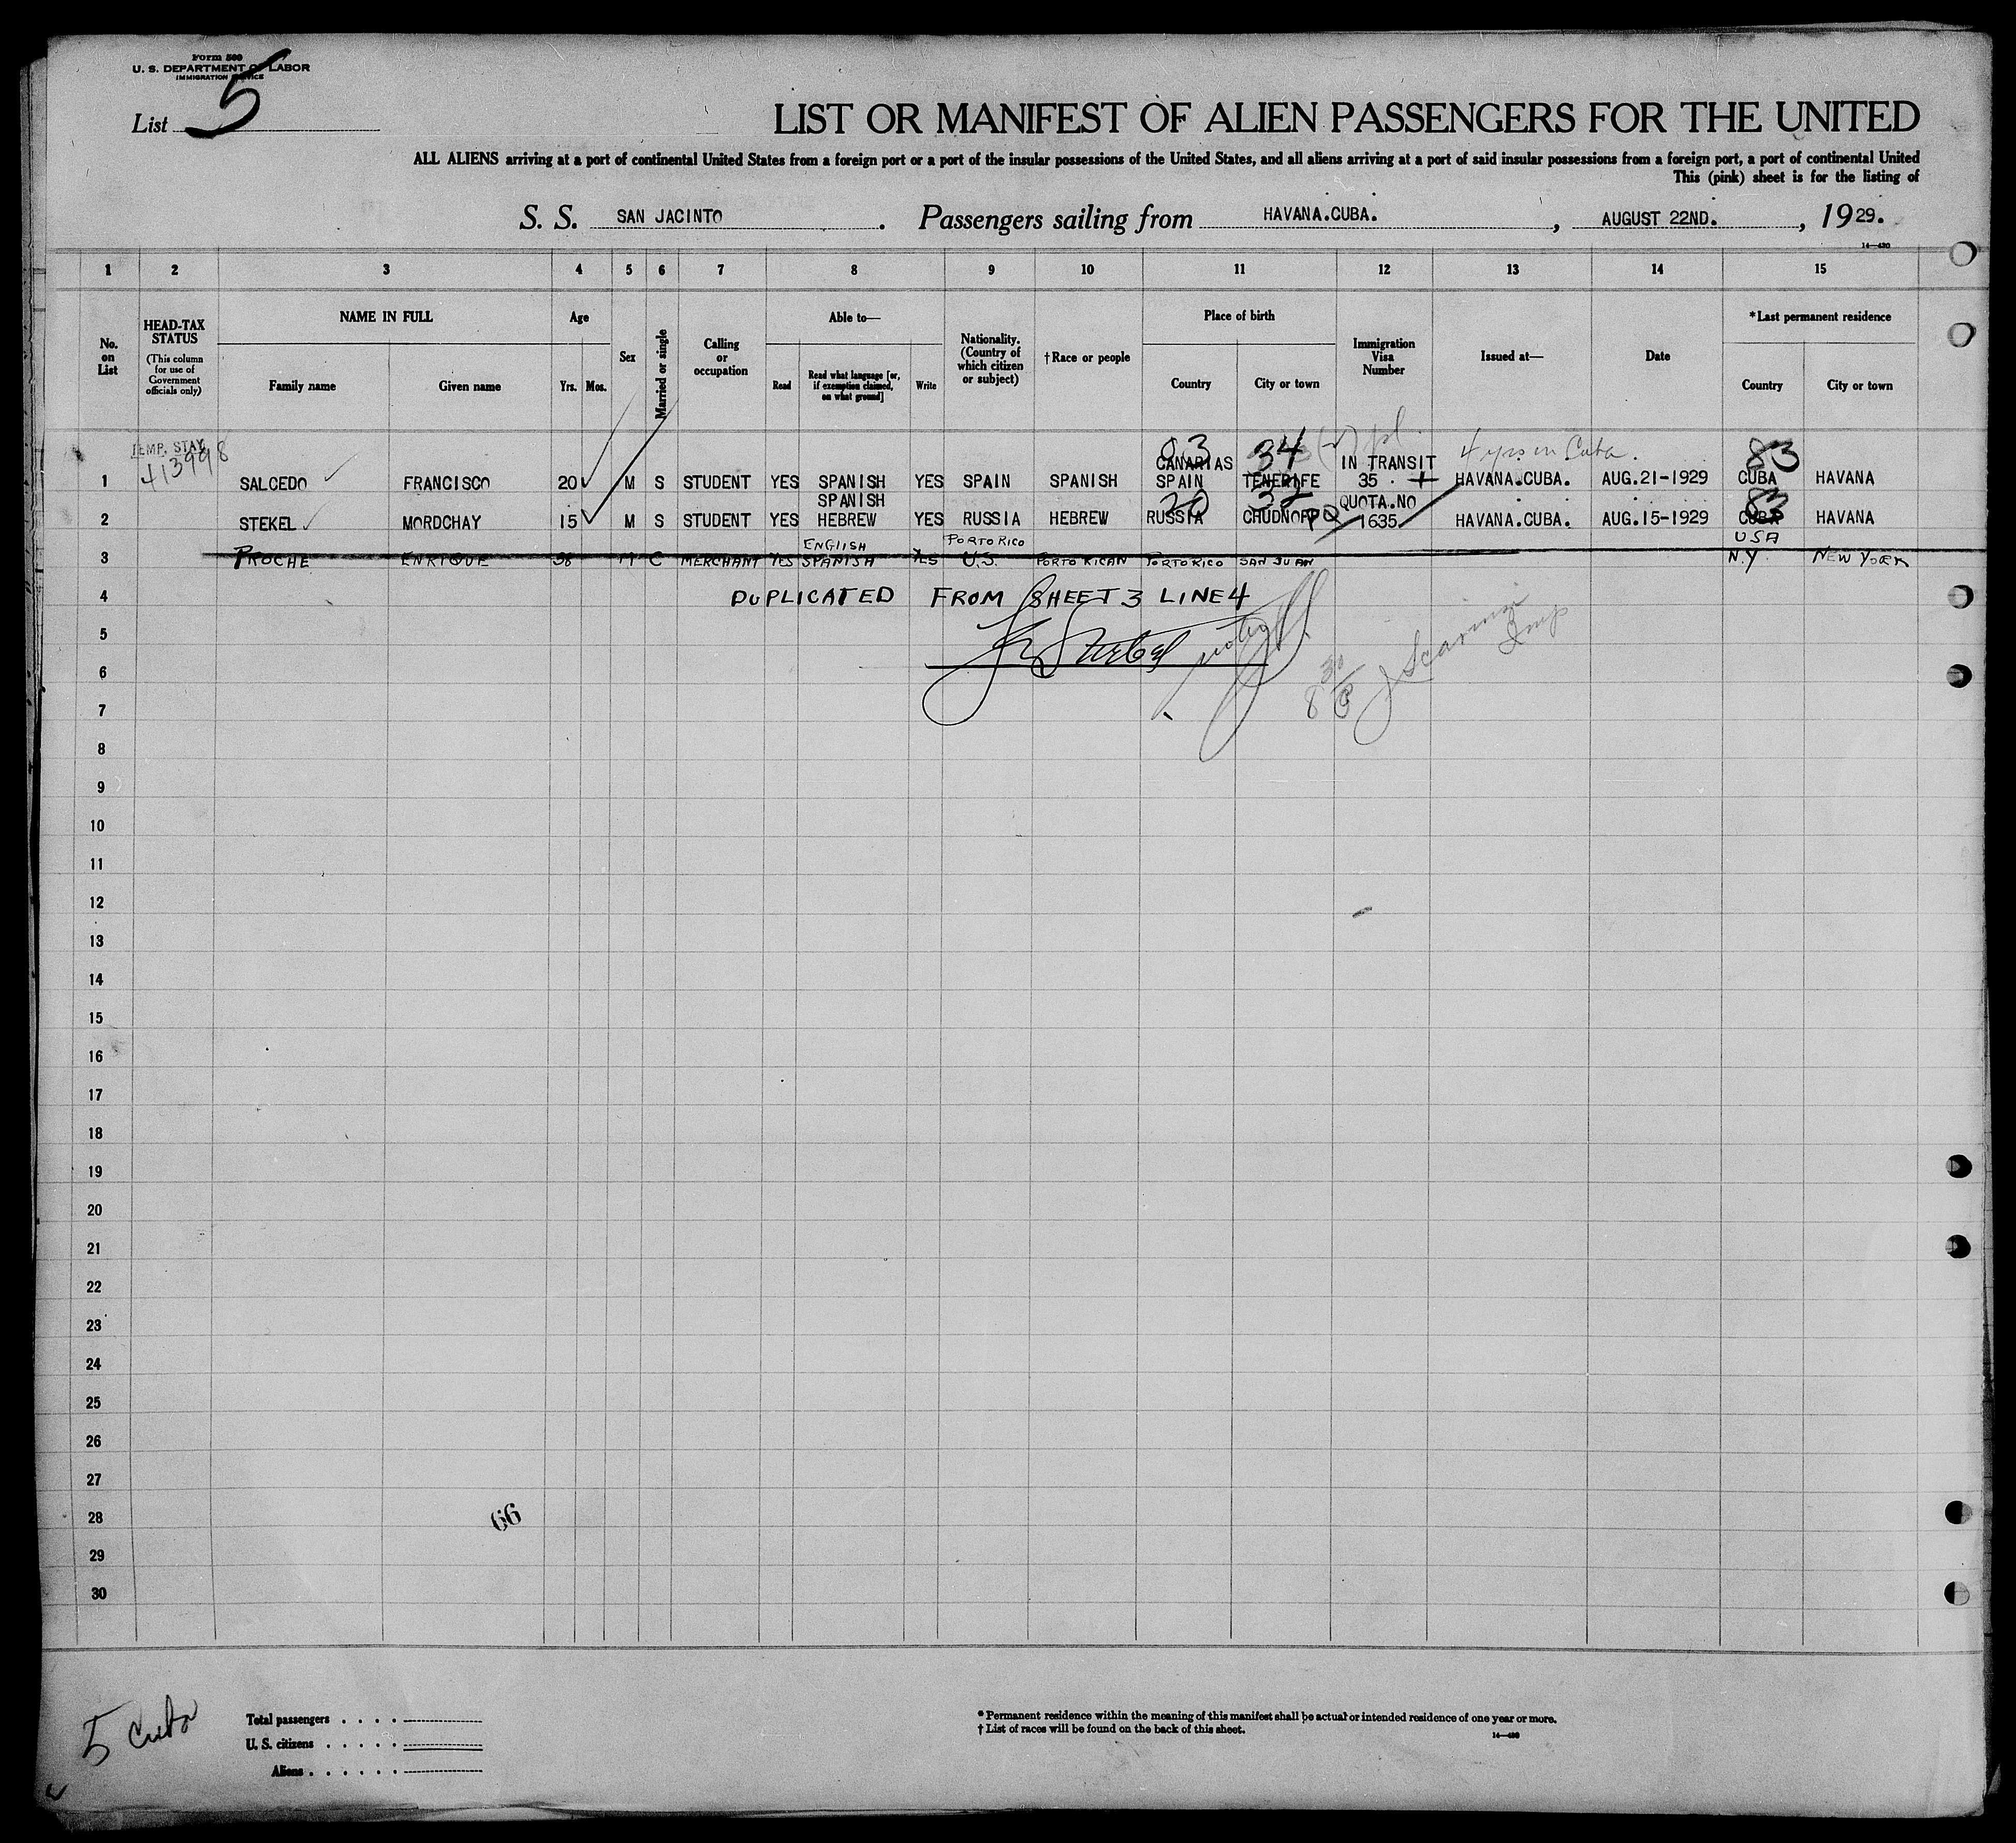 Form 500
U. S. DEPARTMENT OF LABOR
IMMIGRATION SERVICE
List 5
LIST OR MANIFEST OF ALIEN PASSENGERS FOR THE UNITED
ALL ALIENS arriving at a port of continental United States from a foreign port or a port of the insular possessions of the United States, and all aliens arriving at a port of said insular possessions from a foreign port, a port of continental United
This (pink) sheet is for the listing of
S. S. SAN JACINTO . Passengers sailing from HAVANA.CUBA. , AUGUST 22ND. , 1929.
14—430
1 2 3 4 5 6 7 8 9 10 11 12 13 14 15
No. on List
HEAD-TAX STATUS
(This column for use of Government officials only)
NAME IN FULL
Family name
Given name
Age
Yrs.
Mos.
Sex
Married or single
Calling or occupation
Able to—
Read
Read what language [or, if exemption claimed, on what ground]
Write
Nationality. (Country of which citizen or subject)
†Race or people
Place of birth
Country
City or town
Immigration Visa Number
Issued at—
Date
*Last permanent residence
Country
City or town
TEMP. STAY 03 34 4 yrs in Cuba. 83
413998 CANARIAS IN TRANSIT
1 SALCEDO FRANCISCO 20 M S STUDENT YES SPANISH YES SPAIN SPANISH SPAIN TENERIFE 35 . + HAVANA.CUBA. AUG.21-1929 CUBA HAVANA
SPANISH 20 32 QUOTA.NO 83
2 STEKEL MORDCHAY 15 M S STUDENT YES HEBREW YES RUSSIA HEBREW RUSSIA CHUDNOFF PQ 1635 HAVANA.CUBA. AUG.15-1929 CUBA HAVANA
ENGLISH PORTO RICO USA
3 PROCHE ENRIQUE 38 M C MERCHANT YES SPANISH YES U.S. PORTO RICAN PORTO RICO SAN JUAN N.Y. NEW YORK
4 DUPLICATED FROM SHEET 3 LINE 4
5
6
7
8
9
10
11
12
13
14
15
16
17
18
19
20
21
22
23
24
25
26
27
28 66
29
30
5 Cuba
Total passengers . . . .
U. S. citizens . . . . .
Aliens . . . . . .
* Permanent residence within the meaning of this manifest shall be actual or intended residence of one year or more.
† List of races will be found on the back of this sheet.
14—430